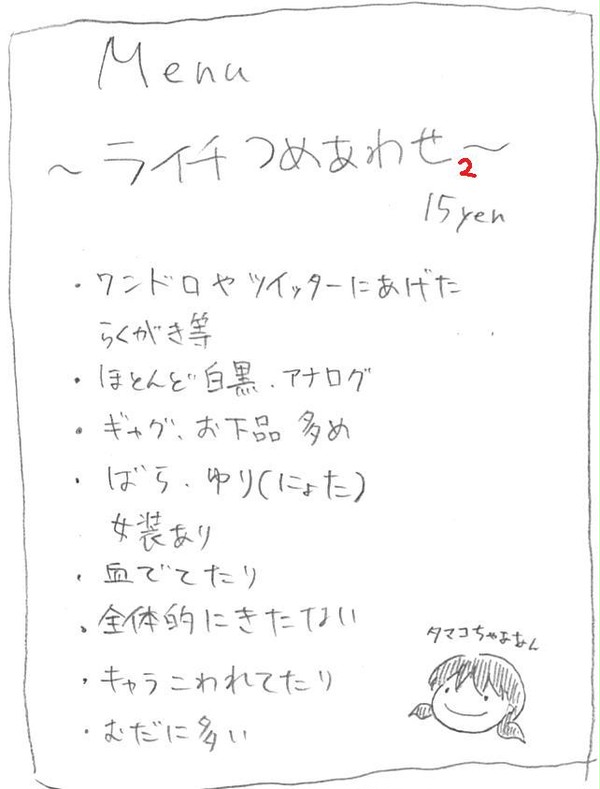 Menu
～ライチつめあわせ2～
15yen
・ワンドロやツイッターにあげた
らくがき等
・ほとんど白黒、アナログ
・ギャグ、お下品多め
・ばら、ゆり(にょた)
女装あり
・血でてたり
・全体的にきたない
・キャラこわれてたり
・むだに多い
タマコちゃまなん